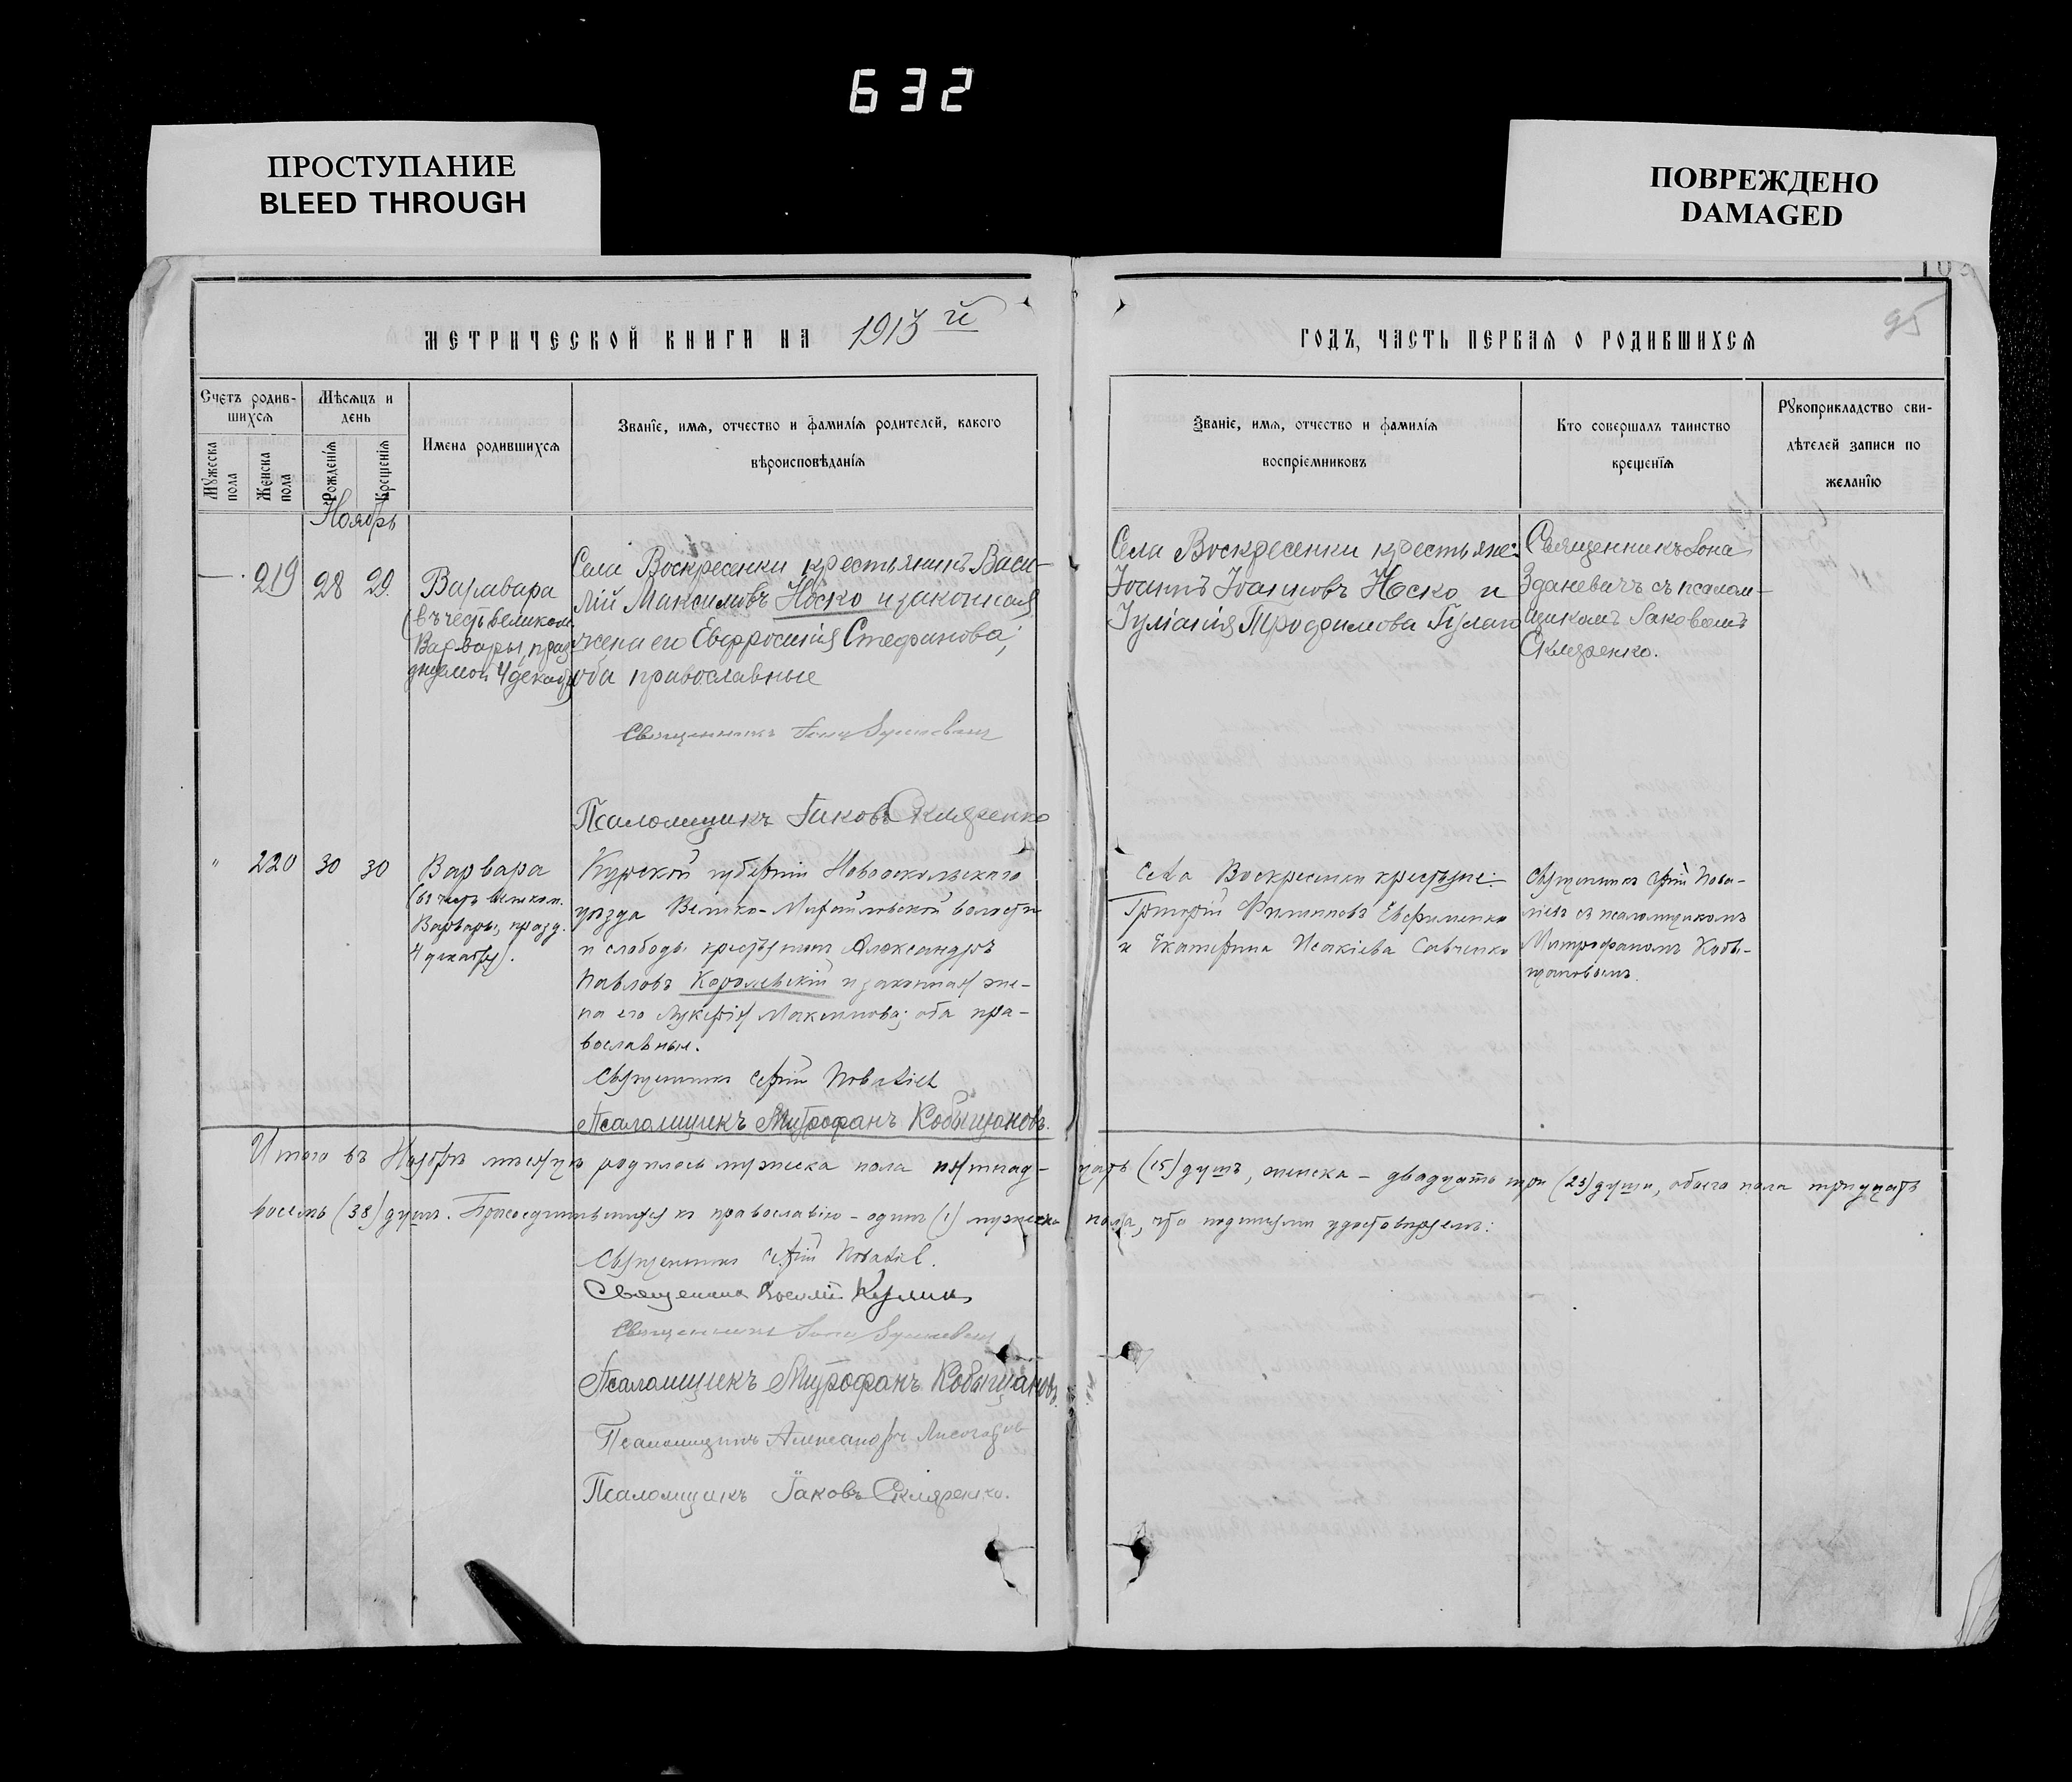 632
ПРОСТУПАНИЕ
BLEED THROUGH
ПОВРЕЖДЕНО
DAMAGED
95
МЕТРИЧЕСКОЙ КНИГИ НА 1913 й
ГОДЪ, ЧАСТЬ ПЕРВАЯ О РОДИВШИХСЯ
Счетъ родив-
шихся
Мужеска пола
Женска пола
Мѣсяцъ и
день
Рожденія
Крещенія
Имена родившихся
Званіе, имя, отчество и фамилія родителей, какого
вѣроисповѣданія
Званіе, имя, отчество и фамилія
воспріемниковъ
Кто совершалъ таинство
крещенія
Рукоприкладство сви-
дѣтелей записи по
желанію
Ноябрь
219 28 29.
Варвара
(въ честь великом.
Варвары, праз
днуемой 4 декабр)
Села Воскресенки крестьянинъ Васи-
лій Максимовъ Носко и законная
жена его Евфросинія Стефанова,
оба православные
Священникъ Іона Зданевичъ
Псаломщикъ Іаковъ Скляренко
Села Воскресенки крестьяне:
Іоаннъ Іоанновъ Носко и
Іуліанія Трофимова
Священникъ Іона
Зданевичъ съ псалом-
щикомъ Іаковомъ
Скляренко.
" 220 30 30
Варвара
(въ честь великом.
Варвары, празд.
4 декабря).
Курской губерніи Новооскольскаго
уѣзда Велико-Михайловской волости
и слободы крестьянинъ Александръ
Павловъ Королевскій и законная же-
на его Лукерія Максимова; оба пра-
вославные.
Священникъ
Псаломщикъ Митрофанъ Кобыщановъ.
Села Воскресенки крестьяне:
Григорій Филипповъ Евфименко
и Екатерина Исакіева Савченко
Священникъ
съ псаломщикомъ
Митрофаномъ Кобы-
щановымъ.
Итого въ Ноябрѣ мѣсяцѣ родилось мужеска пола пятнад- цать (15) душъ, женска - двадцать три (23) души, обоего пола тридцать
восемь (38) душъ. Присоединившихся къ православію - одинъ (1) мужеска пола, что подписями удостовѣряемъ:
Священникъ
Священникъ Василій
Священникъ Іона Зданевичъ
Псаломщикъ Митрофанъ Кобыщановъ.
Псаломщикъ Александръ
Псаломщикъ Іаковъ Скляренко.